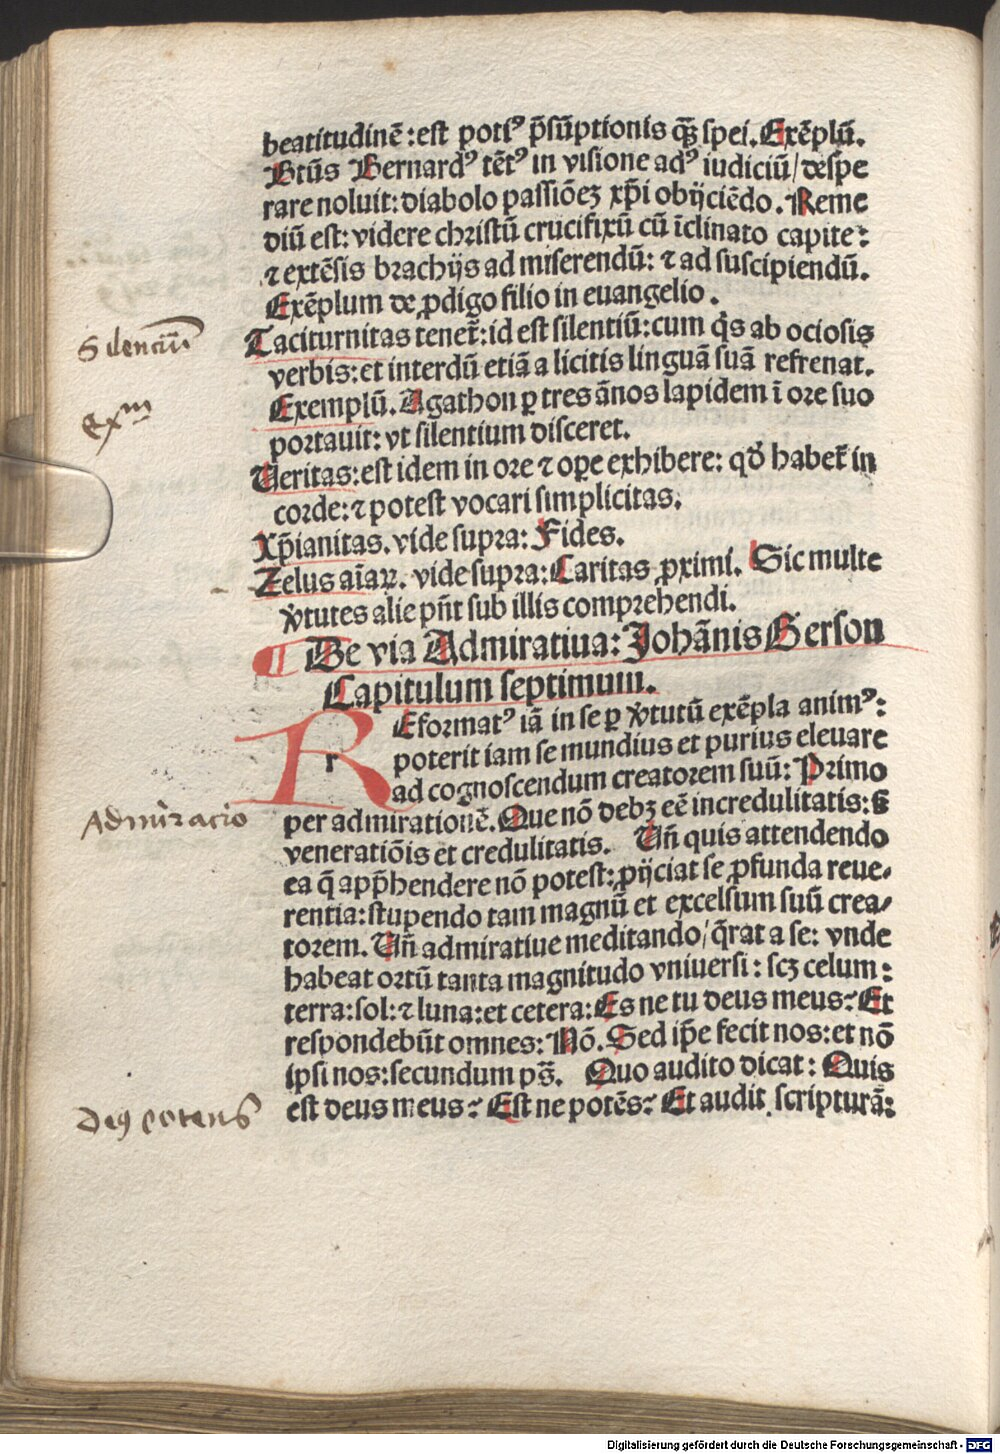 beatitudinē:est potiꝰ p̄sūptionis qȝ̄ spei. Exēplū.
Btūs Bernardꝰ tētꝰ in visione adꝰ iudiciū/ despe
rare noluit: diabolo passiōeȝ xp̄i obijciēdo. Reme
diū est: videre christū crucifixū cū īclinato capite:
⁊ extēsis brachijs ad miserendū: ⁊ ad suscipiendū.
Exēplum de ꝓdigo filio in euangelio.
Silenciū
Taciturnitas tenet̄: id est silentiū: cum q̇s ab ociosis
verbis: et interdū etiā a licitis linguā suā refrenat.
exm
Exemplū. Agathon ꝑ tres ānos lapidem ī ore suo
portauit: vt silentium disceret.
Ueritas: est idem in ore ⁊ oꝑe exhibere: qd̓ habet̄ in
corde: ⁊ potest vocari simplicitas.
Xp̄ianitas. vide supra: Fides.
Zelus aīaꝝ. vide supra: Caritas ꝓximi. Sic multe
v̓tutes alie pn̄t sub illis comprehendi.
¶ De via Admiratiua: Johānis Gerson
Capitulum septimum.
R
r
Eformatꝰ iā in se ꝑ v̓tutū exēpla animꝰ:
poterit iam se mundius et purius eleuare
ad cognoscendum creatorem suū: Primo
Admiracio
per admirationē. Que nō debȝ eē incredulitatis: s̄
veneratiōis et credulitatis. Un̄ quis attendendo
ea q̄ app̄hendere nō potest: ꝓijciat se ꝓfunda reue⸗
rentia: stupendo tam magnū et excelsum suū crea⸗
torem. Un̄ admiratiue meditando/ q̄rat a se: vnde
habeat ortū tanta magnitudo vniuersi: scȝ celum:
terra: sol: ⁊ luna: et cetera: Es ne tu deus meus? Et
respondebūt omnes: Nō. Sed ip̄e fecit nos: et nō
ipsi nos: secundum ps̄. Quo audito dicat: Quis
Deꝰ potens
est deus meus? Est ne potēs? Et audit scripturā:
Digitalisierung gefördert durch die Deutsche Forschungsgemeinschaft - DFG